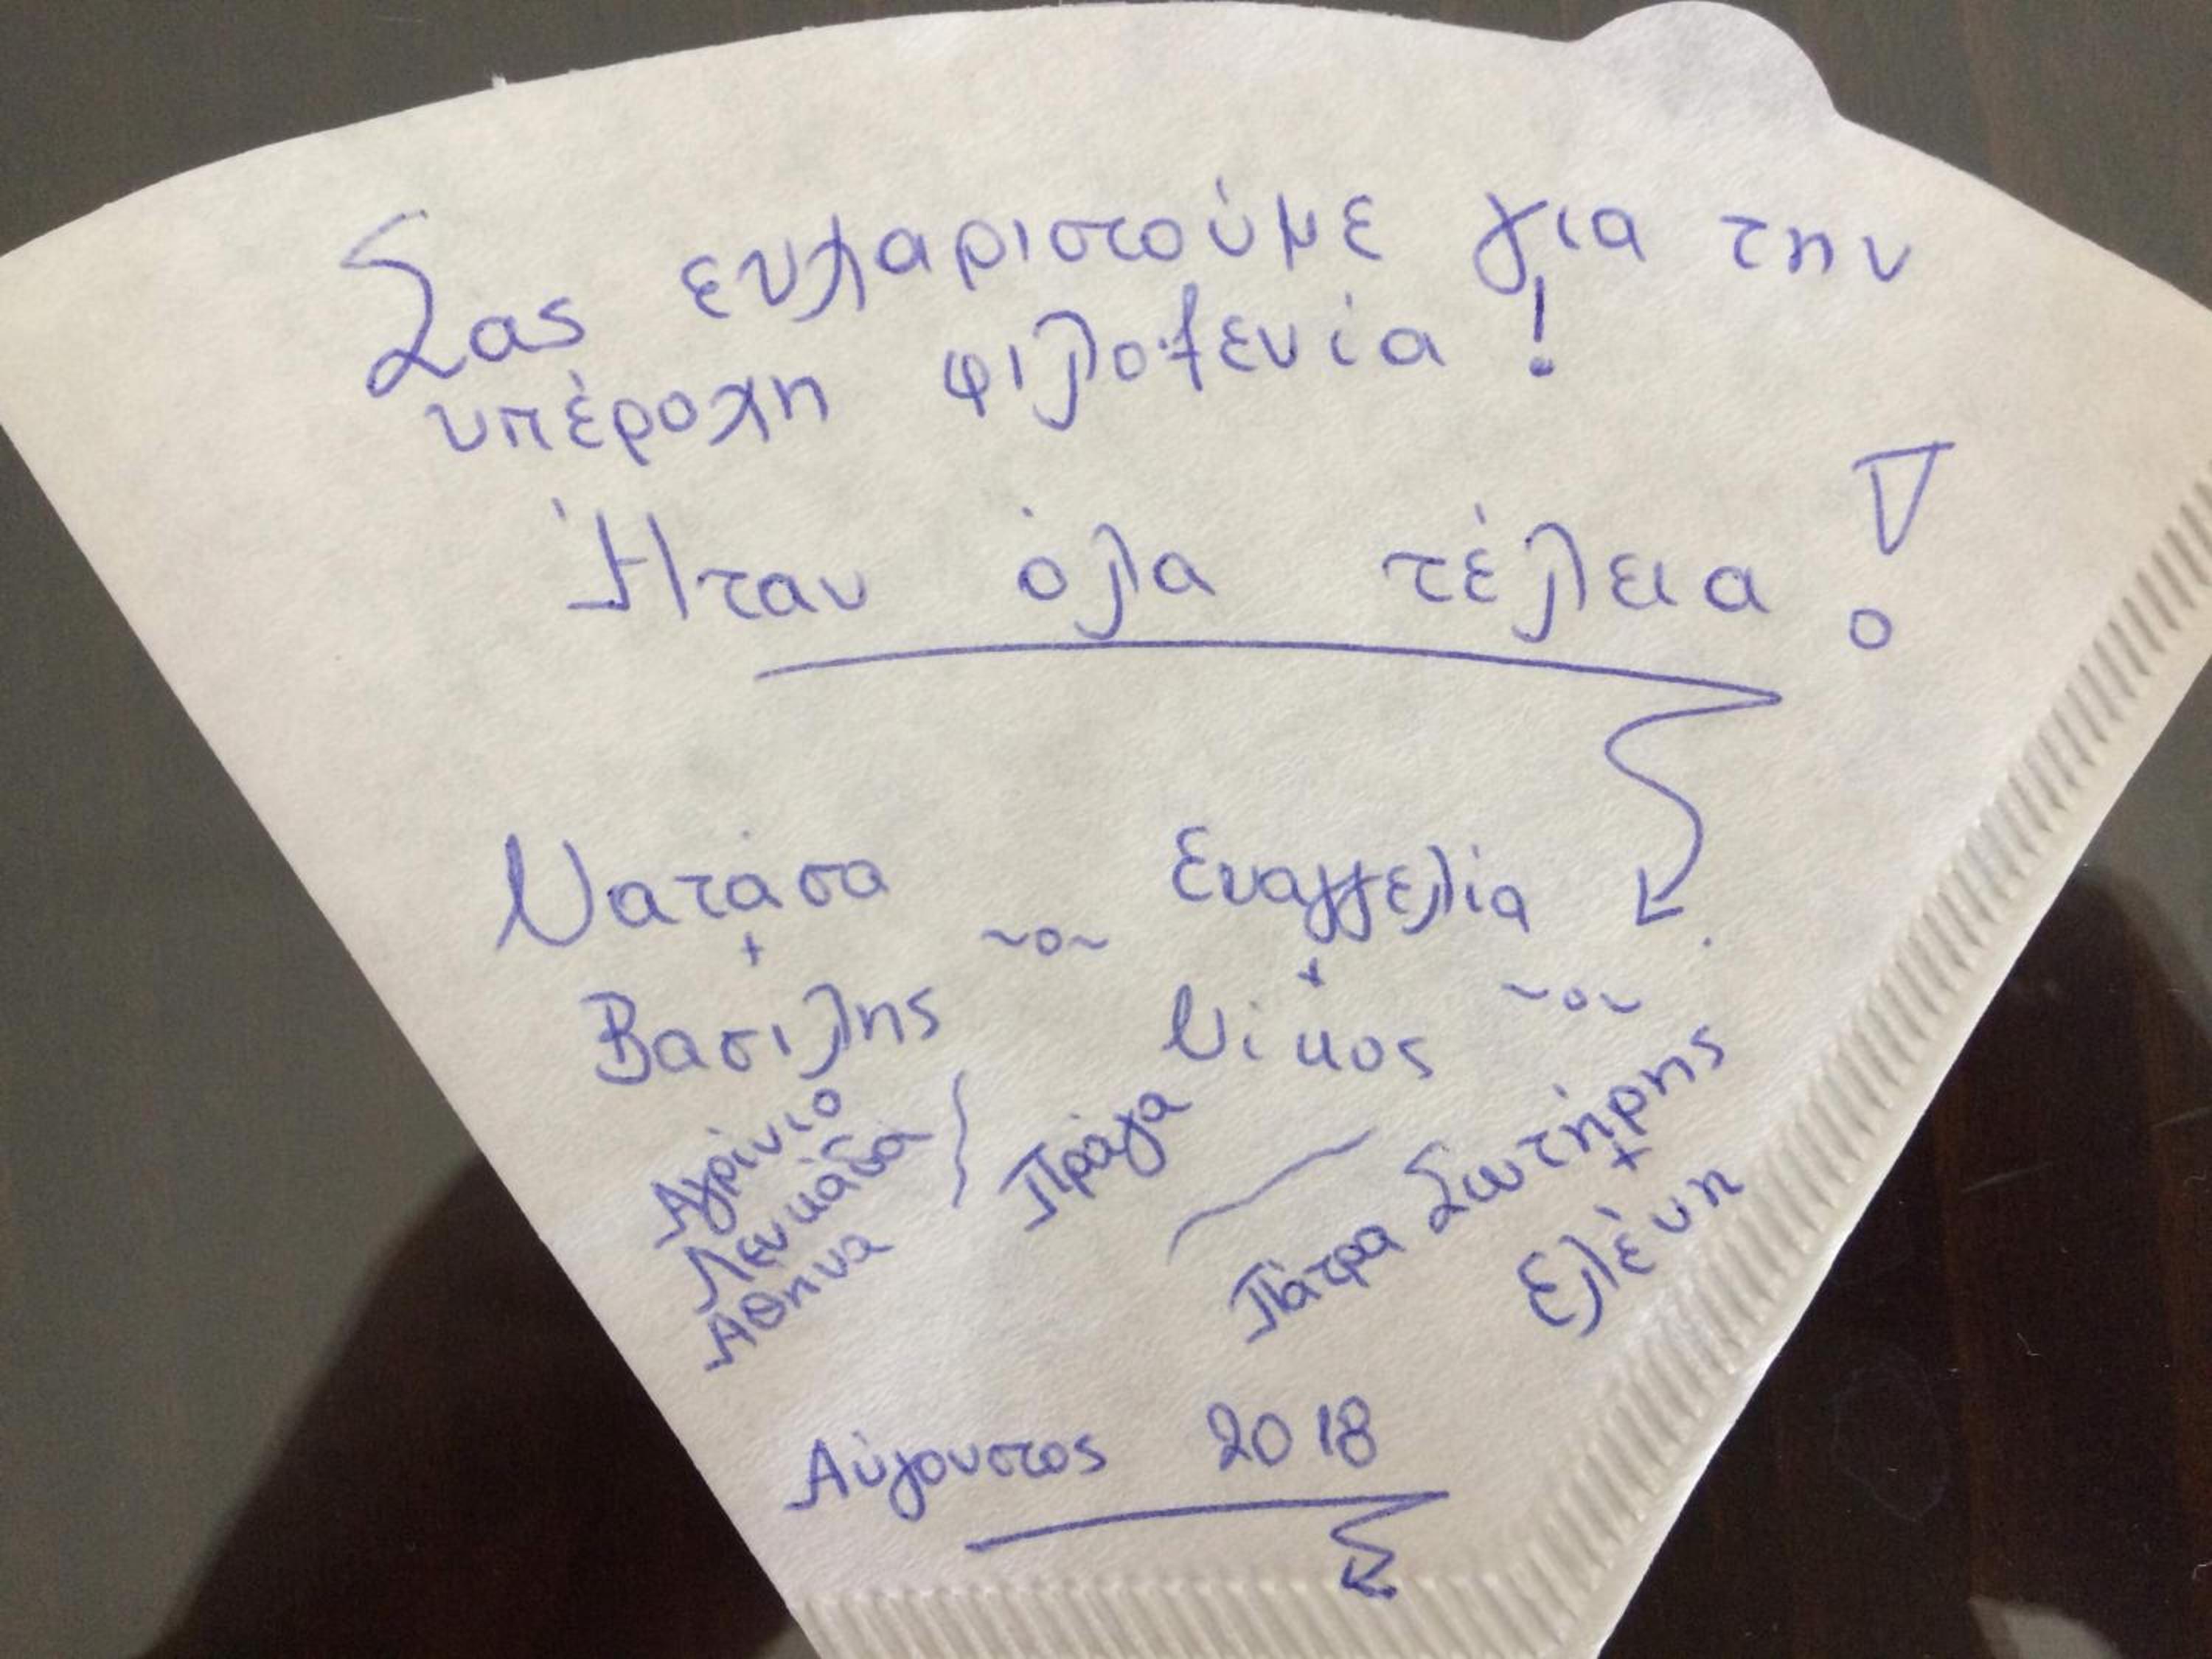 Σας ευχαριστούμε για την
υπέροχη φιλοξενία !
Ήταν όλα τέλεια !
Νατάσα ~ο~ Ευαγγελία
+ +
Βασιλης Νίκος ~ο~
Αγρίνιο
Λευκάδα
Αθηνα
Πράγα
Πάτρα
Σωτήρης
+
Ελένη
Αύγουστος 2018